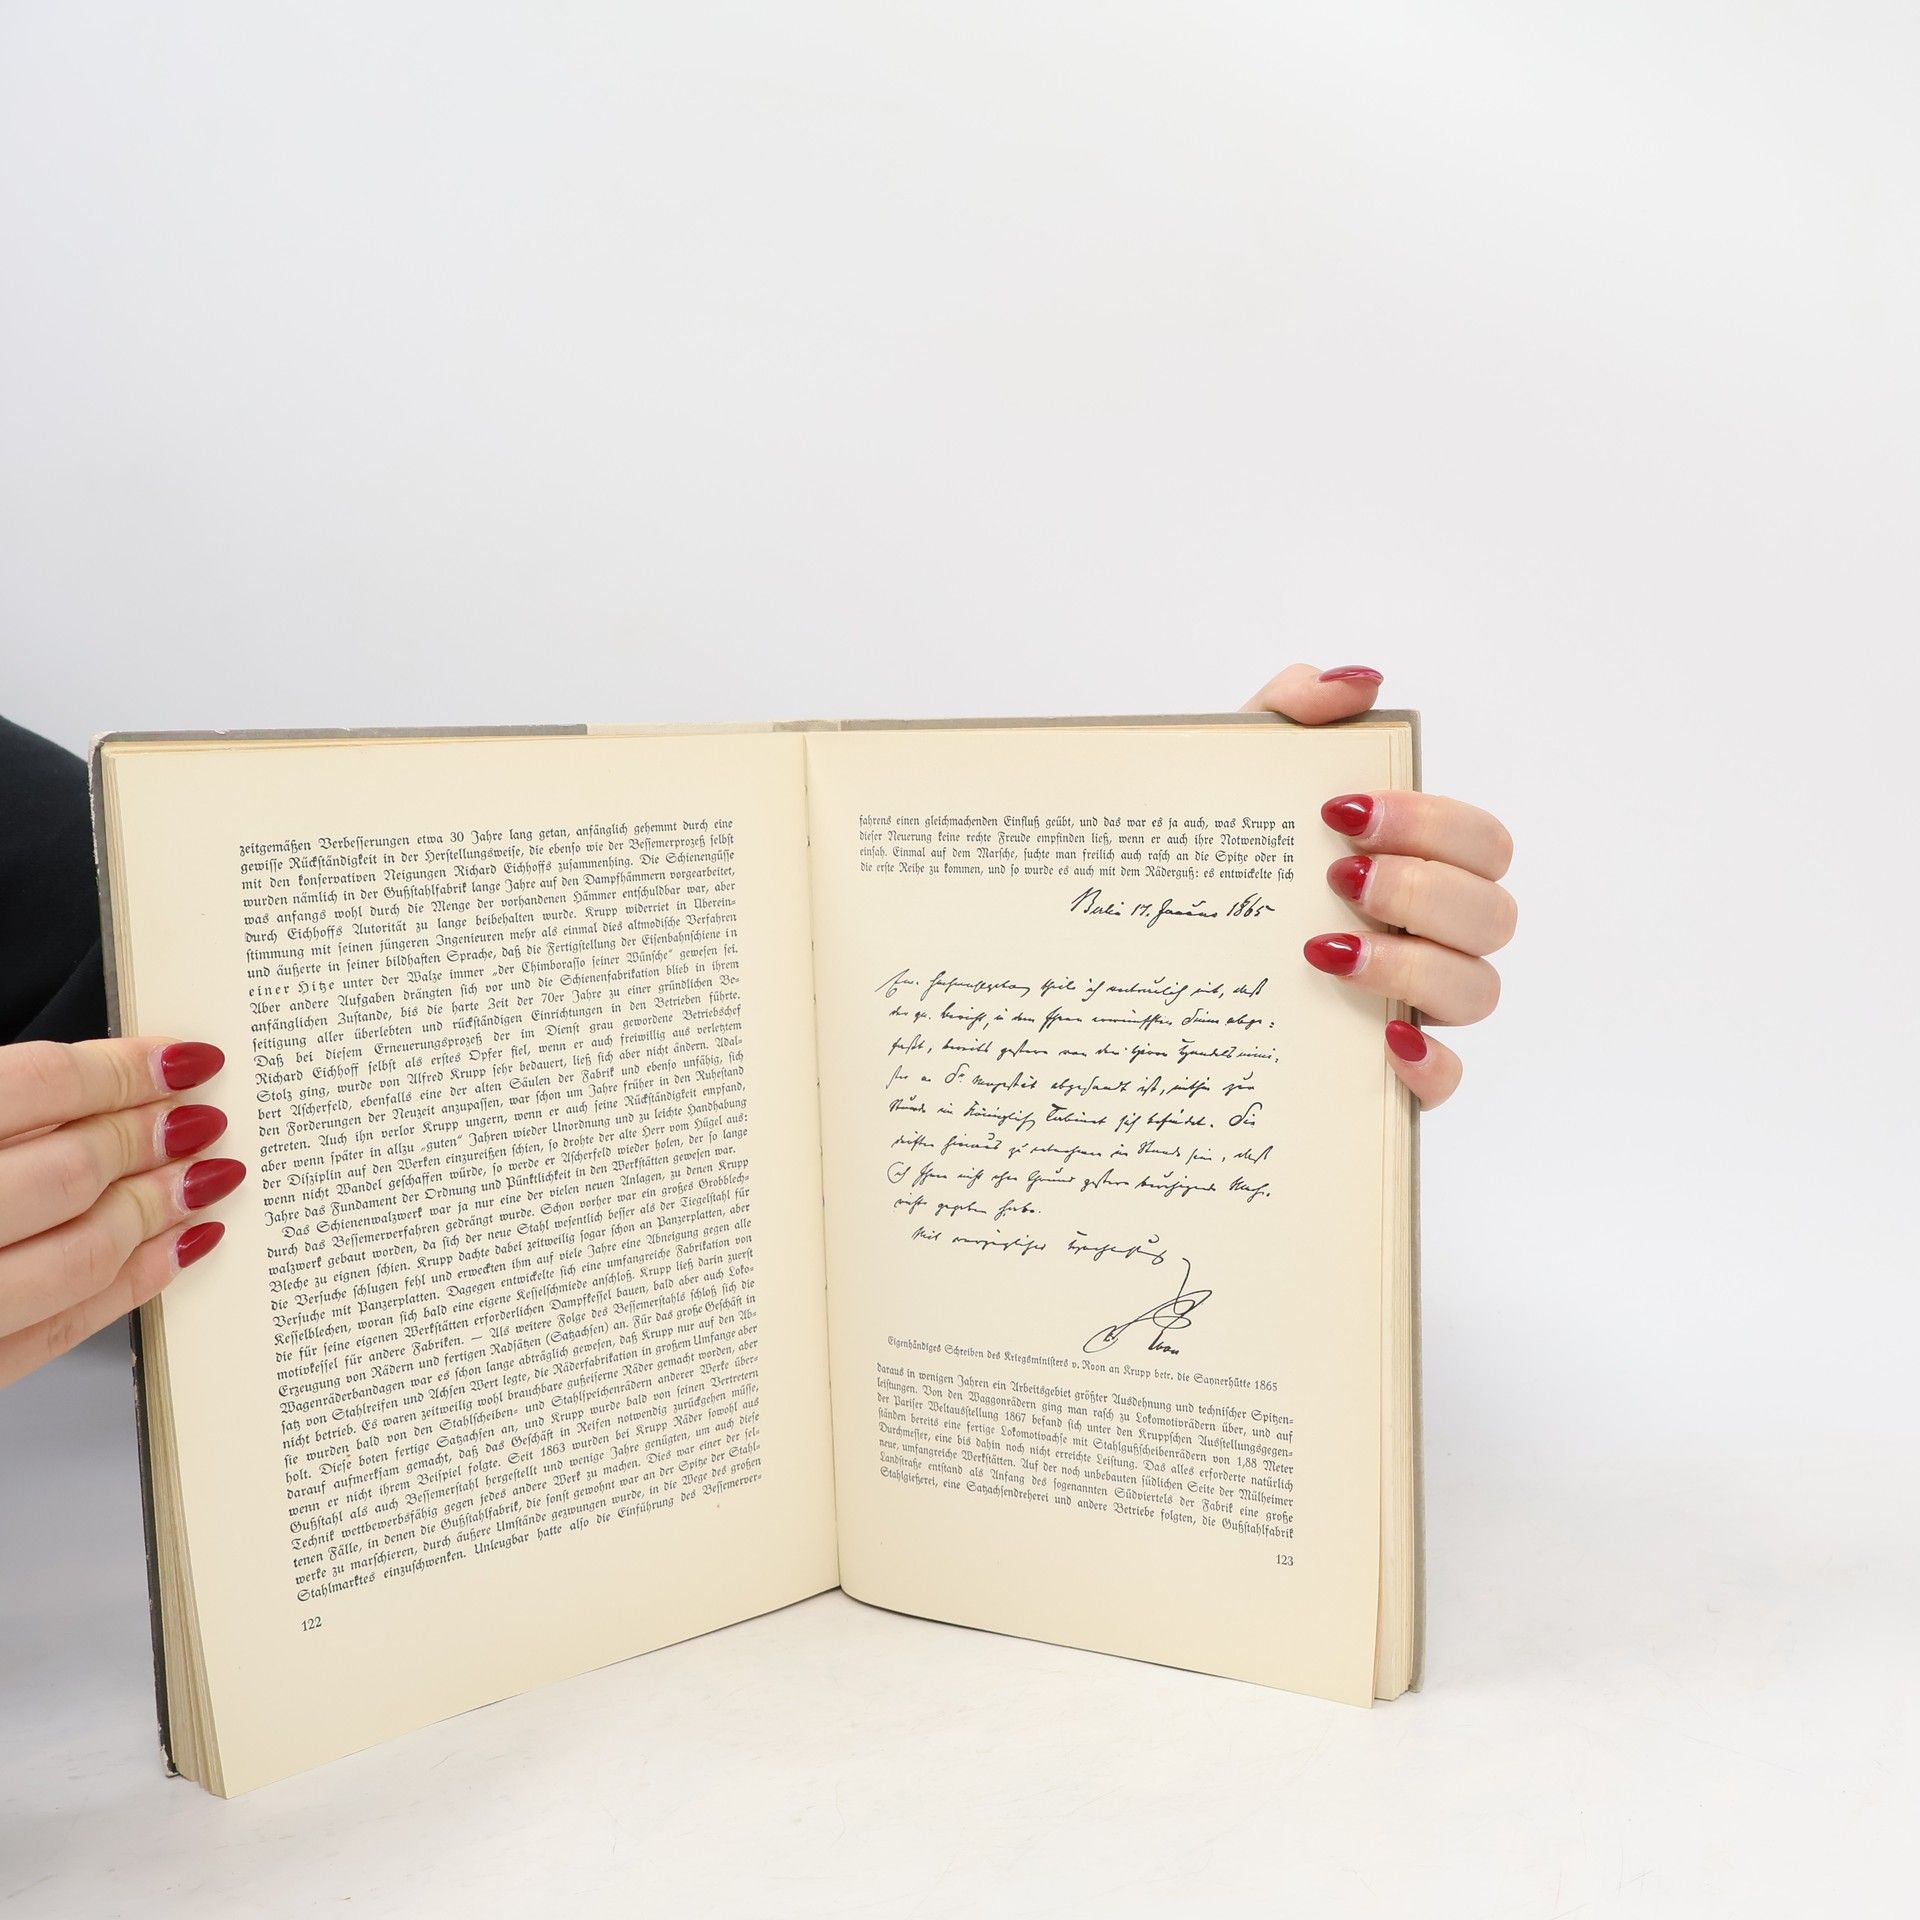 zeitgemäßen Verbesserungen etwa 30 Jahre lang getan, anfänglich gehemmt durch eine
gewisse Rückständigkeit in der Herstellungsweise, die ebenso wie der Bessemerprozeß selbst
mit den konservativen Neigungen Richard Eichhoffs zusammenhing. Die Schienengüsse
wurden nämlich in der Gußstahlfabrik lange Jahre auf den Dampfhämmern vorgearbeitet,
was anfangs wohl durch die Menge der vorhandenen Hämmer entschuldbar war, aber
durch Eichhoffs Autorität zu lange beibehalten wurde. Krupp widerriet in Überein-
stimmung mit seinen jüngeren Ingenieuren mehr als einmal dies altmodische Verfahren
und äußerte in seiner bildhaften Sprache, daß die Fertigstellung der Eisenbahnschiene in
einer Hitze unter der Walze immer „der Chimborasso seiner Wünsche“ gewesen sei.
Aber andere Aufgaben drängten sich vor und die Schienenfabrikation blieb in ihrem
anfänglichen Zustande, bis die harte Zeit der 70er Jahre zu einer gründlichen Be-
seitigung aller überlebten und rückständigen Einrichtungen in den Betrieben führte.
Daß bei diesem Erneuerungsprozeß der im Dienst grau gewordene Betriebschef
Richard Eichhoff selbst als erstes Opfer fiel, wenn er auch freiwillig aus verletztem
Stolz ging, wurde von Alfred Krupp sehr bedauert, ließ sich aber nicht ändern. Adal-
bert Ascherfeld, ebenfalls eine der alten Säulen der Fabrik und ebenso unfähig, sich
den Forderungen der Neuzeit anzupassen, war schon um Jahre früher in den Ruhestand
getreten. Auch ihn verlor Krupp ungern, wenn er auch seine Rückständigkeit empfand,
aber wenn später in allzu „guten“ Jahren wieder Unordnung und zu leichte Handhabung
der Disziplin auf den Werken einzureißen schien, so drohte der alte Herr vom Hügel aus:
wenn nicht Wandel geschaffen würde, so werde er Ascherfeld wieder holen, der so lange
Jahre das Fundament der Ordnung und Pünktlichkeit in den Werkstätten gewesen war.
Das Schienenwalzwerk war ja nur eine der vielen neuen Anlagen, zu denen Krupp
durch das Bessemerverfahren gedrängt wurde. Schon vorher war ein großes Grobblech-
walzwerk gebaut worden, da sich der neue Stahl wesentlich besser als der Tiegelstahl für
Bleche zu eignen schien. Krupp dachte dabei zeitweilig sogar schon an Panzerplatten, aber
die Versuche schlugen fehl und erweckten ihm auf viele Jahre eine Abneigung gegen alle
Versuche mit Panzerplatten. Dagegen entwickelte sich eine umfangreiche Fabrikation von
Kesselblechen, woran sich bald eine eigene Kesselschmiede anschloß. Krupp ließ darin zuerst
die für seine eigenen Werkstätten erforderlichen Dampfkessel bauen, bald aber auch Loko-
motivkessel für andere Fabriken. — Als weitere Folge des Bessemerstahls schloß sich die
Erzeugung von Rädern und fertigen Radsätzen (Satzachsen) an. Für das große Geschäft in
Wagenräderbandagen war es schon lange abträglich gewesen, daß Krupp nur auf den Ab-
satz von Stahlreifen und Achsen Wert legte, die Räderfabrikation in großem Umfange aber
nicht betrieb. Es waren zeitweilig wohl brauchbare gußeiserne Räder gemacht worden, aber
sie wurden bald von den Stahlscheiben- und Stahlspeichenrädern anderer Werke über-
holt. Diese boten fertige Satzachsen an, und Krupp wurde bald von seinen Vertretern
darauf aufmerksam gemacht, daß das Geschäft in Reifen notwendig zurückgehen müsse,
wenn er nicht ihrem Beispiel folgte. Seit 1863 wurden bei Krupp Räder sowohl aus
Gußstahl als auch Bessemerstahl hergestellt und wenige Jahre genügten, um auch diese
Technik wettbewerbsfähig gegen jedes andere Werk zu machen. Dies war einer der sel-
tenen Fälle, in denen die Gußstahlfabrik, die sonst gewohnt war an der Spitze der Stahl-
werke zu marschieren, durch äußere Umstände gezwungen wurde, in die Wege des großen
Stahlmarktes einzuschwenken. Unleugbar hatte also die Einführung des Bessemerver-
122
fahrens einen gleichmachenden Einfluß geübt, und das war es ja auch, was Krupp an
dieser Neuerung keine rechte Freude empfinden ließ, wenn er auch ihre Notwendigkeit
einsah. Einmal auf dem Marsche, suchte man freilich auch rasch an die Spitze oder in
die erste Reihe zu kommen, und so wurde es auch mit dem Räderguß: es entwickelte sich
Berlin 17. Januar 1865
Ew. theile ich vertraulich mit, daß
der qu. Bericht, in dem Ihnen erwünschten Sinne abge-
faßt, bereits gestern von dem Herrn Handelsmini-
ster an Sr. Majestät abgesandt ist, mithin zur
Stunde im Königlich Cabinet sich befindet. Sie
dürften hieraus zu entnehmen im Stande sein, daß
ich Ihnen nicht ohne Grund gestern beruhigende Nach-
richt gegeben habe.
Mit vorzüglicher Hochachtung
v. Roon
Eigenhändiges Schreiben des Kriegsministers v. Roon an Krupp betr. die Saynerhütte 1865
daraus in wenigen Jahren ein Arbeitsgebiet größter Ausdehnung und technischer Spitzen-
leistungen. Von den Waggonrädern ging man rasch zu Lokomotivrädern über, und auf
der Pariser Weltausstellung 1867 befand sich unter den Kruppschen Ausstellungsgegen-
ständen bereits eine fertige Lokomotivachse mit Stahlgußscheibenrädern von 1,88 Meter
Durchmesser, eine bis dahin noch nicht erreichte Leistung. Das alles erforderte natürlich
neue, umfangreiche Werkstätten. Auf der noch unbebauten südlichen Seite der Mülheimer
Landstraße entstand als Anfang des sogenannten Südviertels der Fabrik eine große
Stahlgießerei, eine Satzachsendreherei und andere Betriebe folgten, die Gußstahlfabrik
123